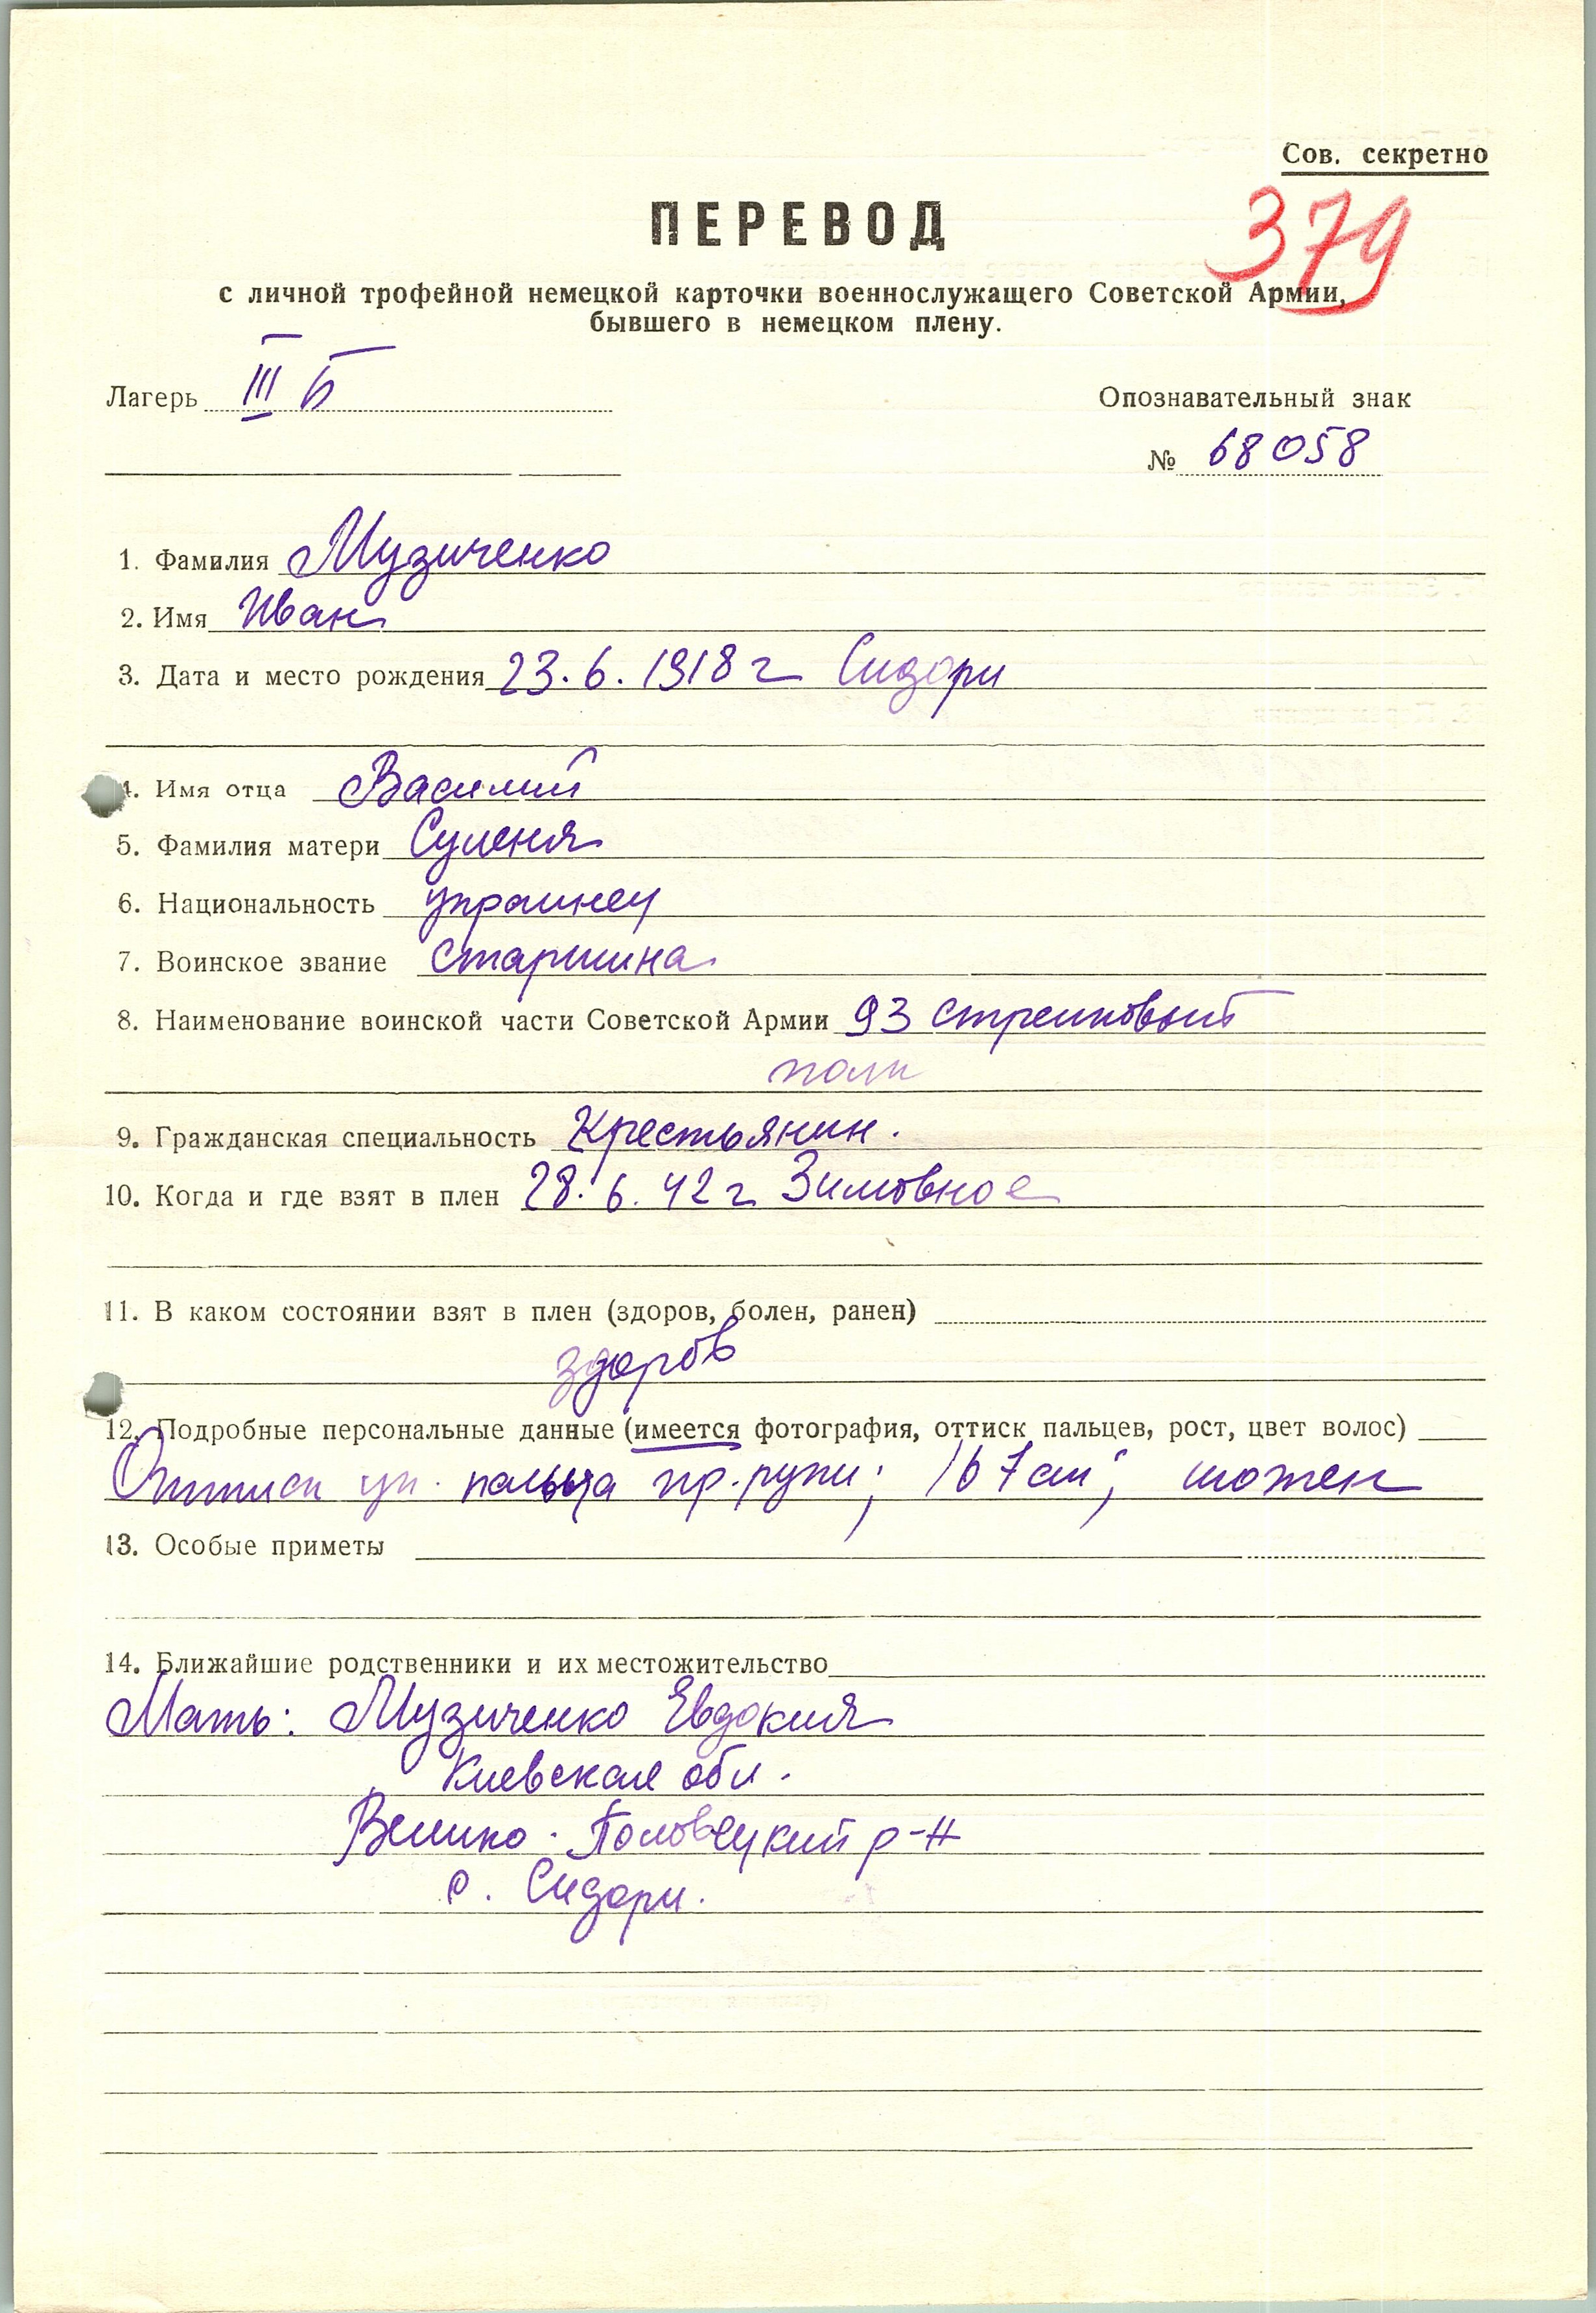 Сов. секретно
ПЕРЕВОД
379
с личной трофейной немецкой карточки военнослужащего Советской Армии,
бывшего в немецком плену.
Лагерь III Б
Опознавательный знак
№ 68058
1. Фамилия Музиченко
2. Имя Иван
3. Дата и место рождения 23.6.1918 г Сидори
4. Имя отца Василий
5. Фамилия матери
6. Национальность украинец
7. Воинское звание старшина
8. Наименование воинской части Советской Армии 93 стрелковый
полк
9. Гражданская специальность Крестьянин.
10. Когда и где взят в плен 28.6.42 г Зимовное
11. В каком состоянии взят в плен (здоров, болен, ранен)
здоров
12. Подробные персональные данные (имеется фотография, оттиск пальцев, рост, цвет волос)
Оттиск ук. пальца пр. руки; 167 см;
13. Особые приметы
14. Ближайшие родственники и их местожительство
Мать: Музиченко Евдокия
Киевская обл.
Велико-Половецкий р-н
с. Сидори.